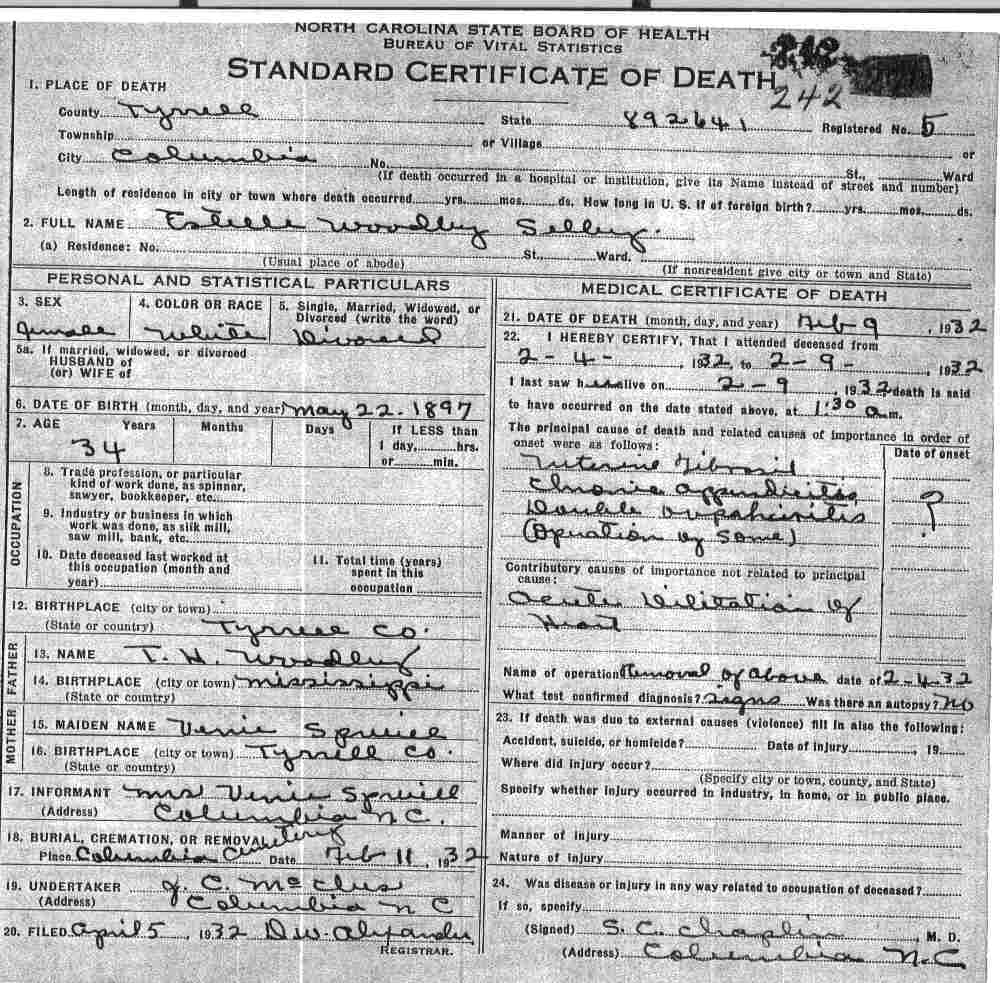 NORTH CAROLINA STATE BOARD OF HEALTH
BUREAU OF VITAL STATISTICS
STANDARD CERTIFICATE OF DEATH
242
1. PLACE OF DEATH
County Tyrrell State 892641 Registered No. 5
Township or Village or
City Columbia No. St., Ward
(If death occurred in a hospital or institution, give its Name instead of street and number)
Length of residence in city or town where death occurred yrs. mos. ds. How long in U. S. if of foreign birth? yrs. mos. ds.
2. FULL NAME Estelle Woodley Selley
(a) Residence: No. St. Ward.
(Usual place of abode) (If nonresident give city or town and State)
PERSONAL AND STATISTICAL PARTICULARS
3. SEX 4. COLOR OR RACE 5. Single, Married, Widowed, or
Divorced (write the word)
Female White Divorced
5a. If married, widowed, or divorced
HUSBAND of
(or) WIFE of
6. DATE OF BIRTH (month, day, and year) May 22. 1897
7. AGE Years Months Days If LESS than
34 1 day, hrs.
or min.
OCCUPATION
8. Trade profession, or particular
kind of work done, as spinner,
sawyer, bookkeeper, etc.
9. Industry or business in which
work was done, as silk mill,
saw mill, bank, etc.
10. Date deceased last worked at
this occupation (month and
year)
11. Total time (years)
spent in this
occupation
12. BIRTHPLACE (city or town)
(State or country) Tyrrell Co.
FATHER
13. NAME T. H. Woodley
14. BIRTHPLACE (city or town) Mississippi
(State or country)
MOTHER
15. MAIDEN NAME Venie Spruill
16. BIRTHPLACE (city or town) Tyrrell Co.
(State or country)
17. INFORMANT Mrs Venie Spruill
(Address) Columbia N.C.
18. BURIAL, CREMATION, OR REMOVAL
Place Columbia Cemetery Date Feb 11, 1932
19. UNDERTAKER J. C. McClees
(Address) Columbia N C
20. FILED April 5, 1932 D.W. Alexander
REGISTRAR.
MEDICAL CERTIFICATE OF DEATH
21. DATE OF DEATH (month, day, and year) Feb 9, 1932
22. I HEREBY CERTIFY, That I attended deceased from
2-4-, 1932, to 2-9-, 1932
I last saw her alive on 2-9, 1932 death is said
to have occurred on the date stated above, at 1:30 a.m.
The principal cause of death and related causes of importance in order of
onset were as follows: Date of onset
Uterine Fibroid
Chronic appendicitis ?
Double
(Operation of same)
Contributory causes of importance not related to principal
cause:
Acute Dilitation of
Heart
Name of operation Removal of Above date of 2-4-32
What test confirmed diagnosis? Signs Was there an autopsy? No
23. If death was due to external causes (violence) fill in also the following:
Accident, suicide, or homicide? Date of injury, 19
Where did injury occur?
(Specify city or town, county, and State)
Specify whether injury occurred in industry, in home, or in public place.
Manner of injury
Nature of injury
24. Was disease or injury in any way related to occupation of deceased?
If so, specify
(Signed) S. C. Chaplin, M. D.
(Address) Columbia N.C.